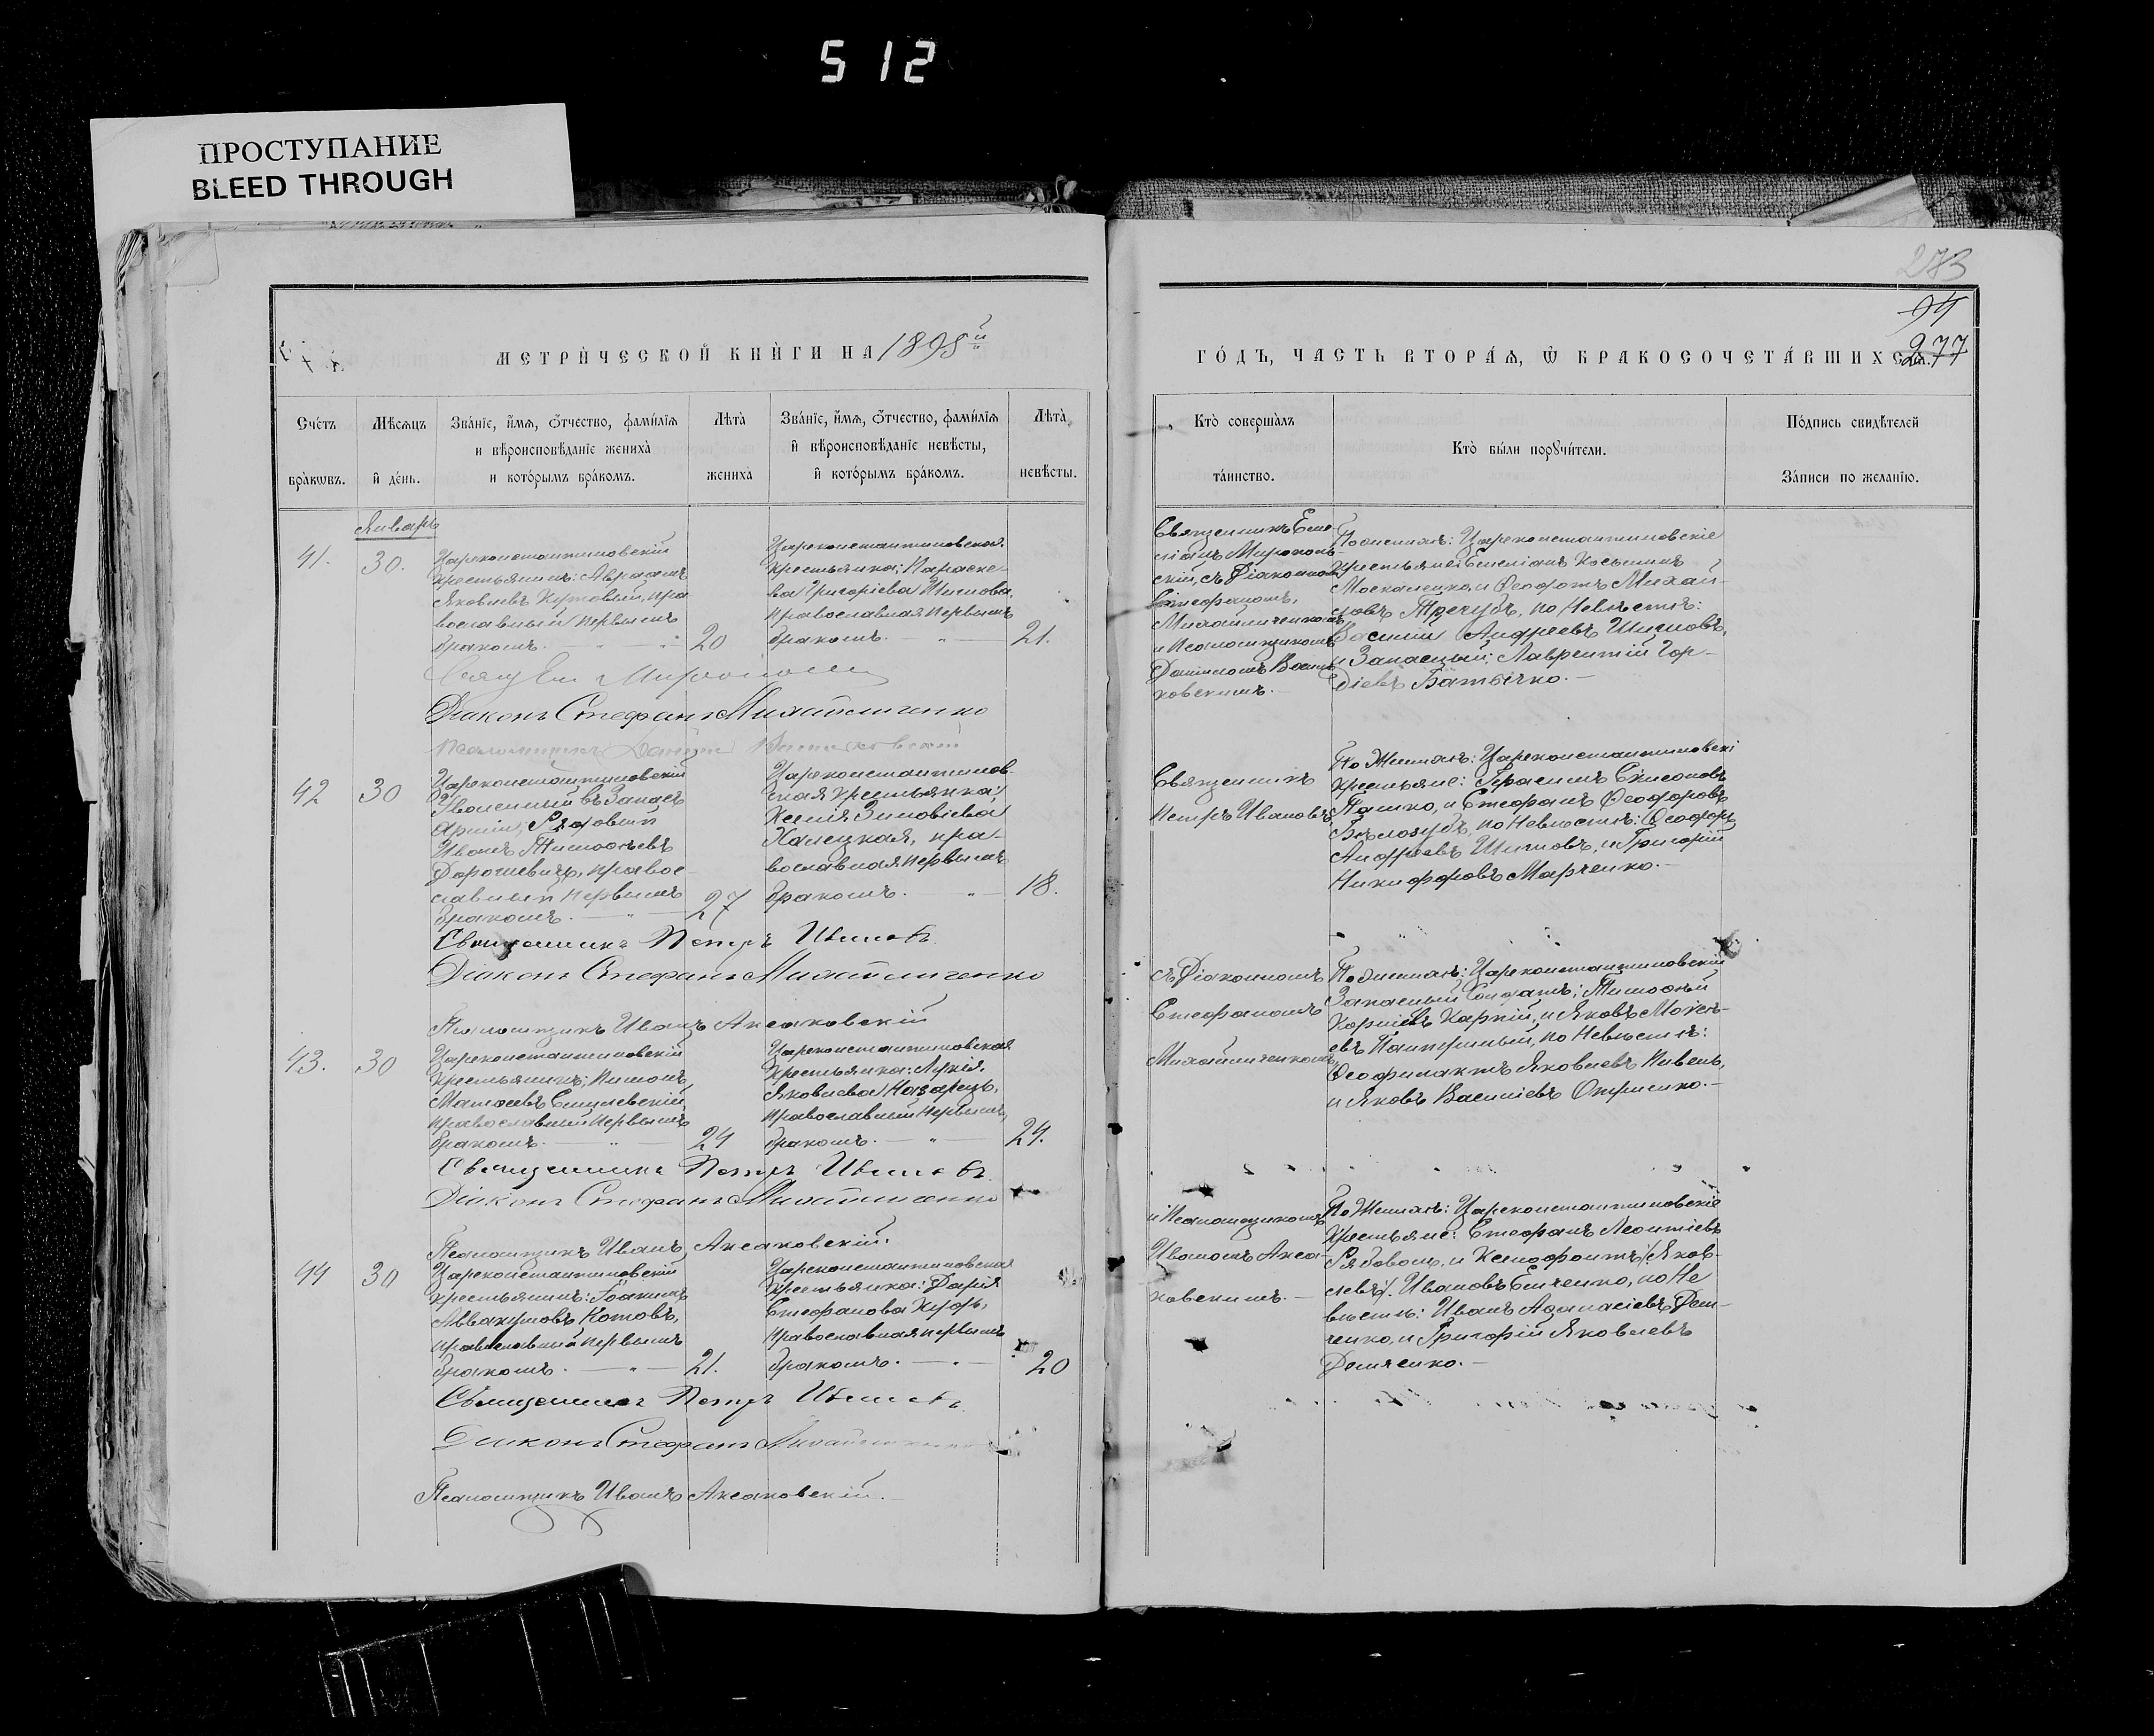 512
ПРОСТУПАНИЕ
BLEED THROUGH
273
94
277
МЕТРИ́ЧЕСКОЙ КНИ́ГИ НА 1898й
ГО́ДЪ, ЧАСТЬ ВТОРА́Я, Ѿ БРАКОСОЧЕТА́ВШИХСЯ.
Сче́тъ
бра́кѡвъ.
Мѣ́сяцъ
и де́нь.
Зва́нїе, и́мя, ѻ́тчество, фами́лїя
и вѣроисповѣ́данїе жениха̀
и кото́рымъ бра́комъ.
Лѣта̀
жениха̀
Зва́нїе, и́мя, ѻ́тчество, фами́лїя
и҆ вѣроисповѣ́данїе невѣ́сты,
и҆ кото́рымъ бра́комъ.
Лѣта̀
невѣ́сты.
Кто̀ соверша́лъ
та́инство.
Кто̀ бы́ли порꙋчи́тели.
По́дпись свидѣ́телей
За́писи по жела́нїю.
Январь
41.
30.
Цареконстантиновскій
крестьянинъ: Авраамъ
Яковлевъ Кутовый, пра
вославный первымъ
бракомъ.
20
Цареконстантиновская
крестьянка: Параске-
ва Григоріева Шитова,
православная первымъ
бракомъ.
21.
Священникъ Еми
ліанъ Мирополь-
скій, съ Діакономъ
Стефаномъ
Михайличенкомъ
и Псаломщикомъ
Даніиломъ Васить
ковскимъ.
По женихѣ: Цареконстантиновскіе
крестьяне: Емеліанъ Косьминъ
Москалецко, и Ѳеодотъ Михай-
ловъ Трегубъ, по Невѣстѣ:
Василій Андреевъ Шитовъ,
и Запасный: Лаврентій Гор-
діевъ Батечко.
Діаконъ Стефанъ Михайличенко
Псаломщикъ Даніилъ
42
30
Цареконстантиновскій
Уволенный въ Запасъ
Арміи, Рядовый
Иванъ Тимоѳеевъ
Дорошевичъ, правос-
лавный первымъ
бракомъ.
27
Цареконстантинов-
ская крестьянка:
Ксенія Зиновіева
Халецкая, пра-
вославная первымъ
бракомъ.
18.
Священникъ
Петръ Ивановъ
По Женихѣ: Цареконстантиновскі
крестьяне: Герасимъ Симоновъ
Пашко, и Стефанъ Ѳеодоровъ
Бѣлозубъ, по Невѣстѣ: Ѳеодоръ
Андреевъ Шитовъ, и Григорій
Никифоровъ Марченко.
Священникъ Петръ Ивановъ
Діаконъ Стефанъ Михайличенко
Псаломщикъ Иванъ Аксаковскій
43.
30
Цареконстантиновскій
крестьянинъ: Пименъ
Матѳеевъ
православный первымъ
бракомъ.
24
Цареконстантиновская
крестьянка: Лукія
Яковлева Назарецъ,
православный первымъ
бракомъ.
24.
съ Діакономъ
Стефаномъ
Михайличенкомъ
По женихѣ: Цареконстантиновскій
Запасный Солдатъ: Тимоѳей
Корніевъ Карпій, и Яковъ Моисе-
евъ по Невѣстѣ:
Ѳеофилактъ Яковлевъ Пивень,
и Яковъ Василіевъ Онуренко.
Священникъ Петръ Ивановъ
Діаконъ Стефанъ Михайличенко
Псаломщикъ Иванъ Аксаковскій.
44
30
Цареконстантиновскій
крестьянинъ: Іоакимъ
Аввакумовъ Котовъ,
православный первымъ
бракомъ.
21.
Цареконстантиновская
крестьянка: Дарія
Стефанова
православная первымъ
бракомъ.
20
и Псаломщикомъ
Иваномъ Акса-
ковскимъ.
По Женихѣ: Цареконстантиновскіе
крестьяне: Стефанъ Леонтіевъ
Рядовой, и Ксенофонтъ /: Яков-
левъ :/ Ивановъ Емченко, по Не
вѣстѣ: Иванъ Аѳанасіевъ Дем-
ченко, и Григорій Яковлевъ
Демченко.
Священникъ Петръ Ивановъ
Діаконъ Стефанъ Михайличенко
Псаломщикъ Иванъ Аксаковскій.